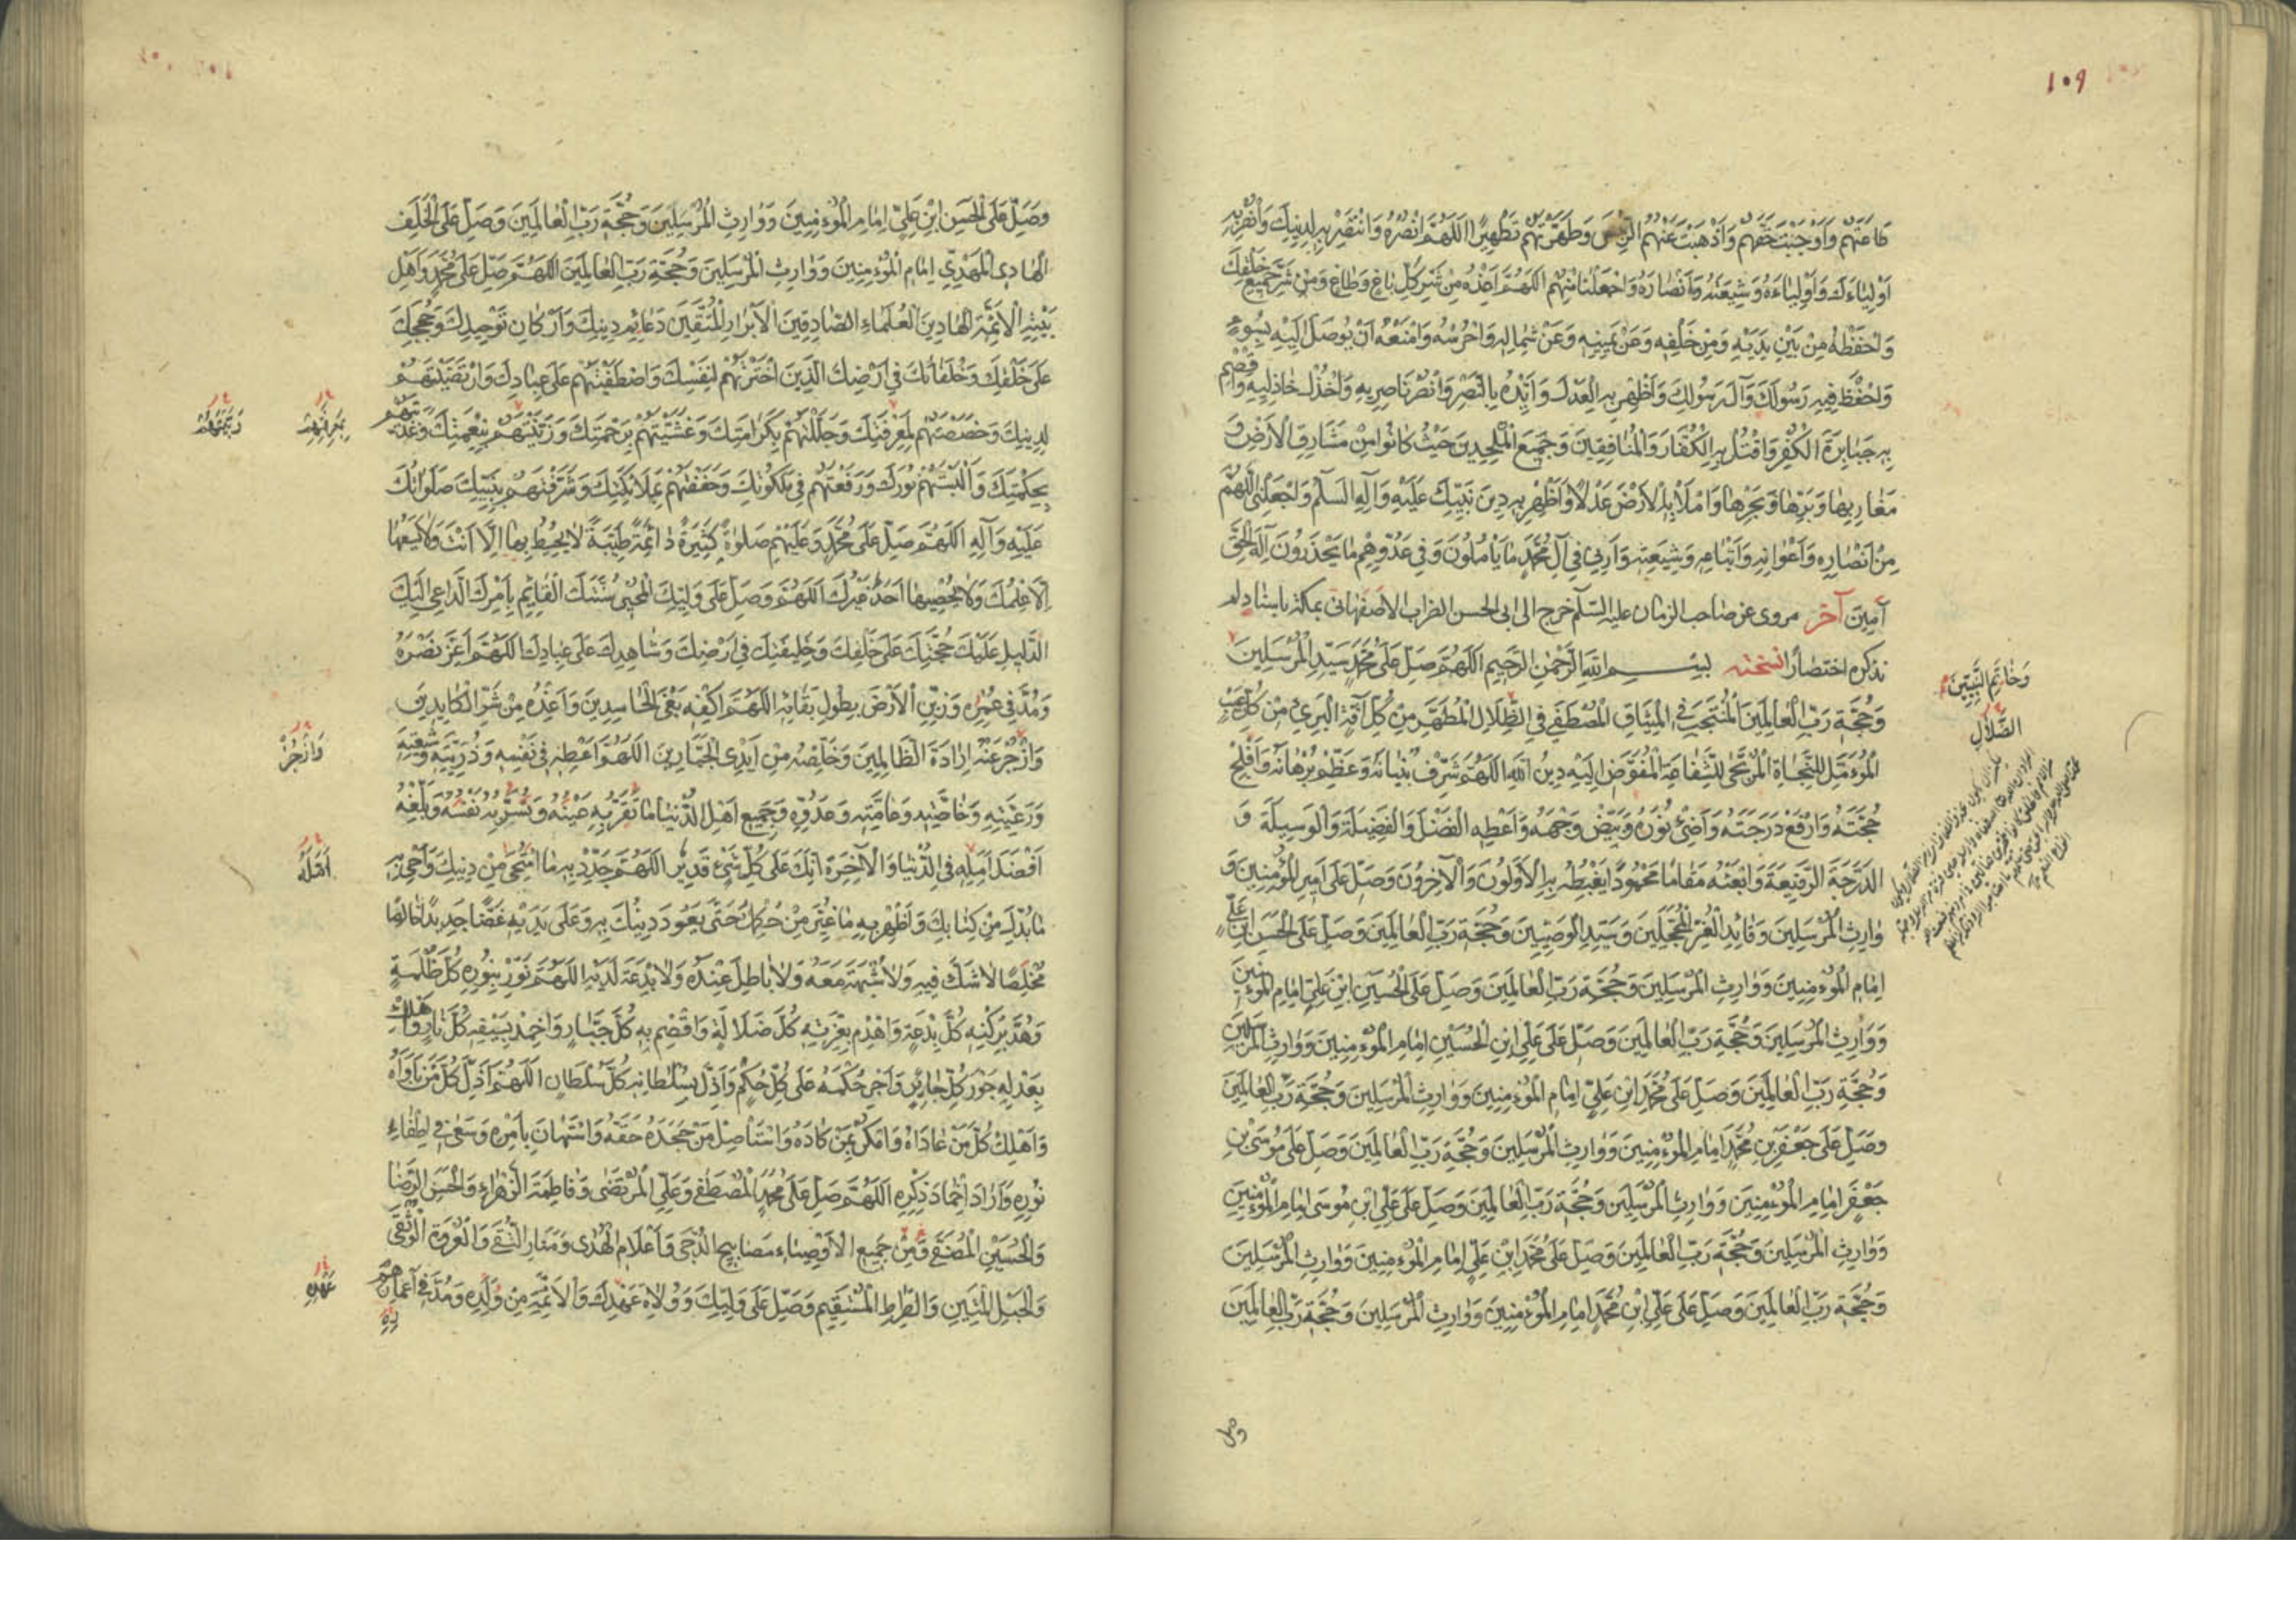 ١٠٩
طاعَتَهُمْ وَاَوْجَبْتَ حَقَّهُمْ وَاَذْهَبْتَ عَنْهُمُ الرِّجْسَ وَطَهَّرْتَهُمْ تَطْهِيرًا اَللّهُمَّ انْصُرْهُ وَانْتَصِرْ بِهِ لِدِينِكَ وَانْصُرْ بِهِ
اَوْلِياءَكَ وَاَوْلِياءَهُ وَشِيعَتَهُ وَاَنْصارَهُ وَاجْعَلْنا مِنْهُمْ اَللّهُمَّ اَعِذْهُ مِنْ شَرِّ كُلِّ باغٍ وَطاغٍ وَمِنْ شَرِّ جَمِيعِ خَلْقِكَ
وَاحْفَظْهُ مِنْ بَيْنِ يَدَيْهِ وَمِنْ خَلْفِهِ وَعَنْ يَمِينِهِ وَعَنْ شِمالِهِ وَاحْرُسْهُ وَامْنَعْهُ اَنْ يُوصَلَ اِلَيْهِ بِسُوءٍ
وَاحْفَظْ فِيهِ رَسُولَكَ وَآلَ رَسُولِكَ وَاَظْهِرْ بِهِ الْعَدْلَ وَاَيِّدْهُ بِالنَّصْرِ وَانْصُرْ ناصِرِيهِ وَاخْذُلْ خاذِلِيهِ وَاقْصِمْ
بِهِ جَبابِرَةَ الْكُفْرِ وَاقْتُلْ بِهِ الْكُفّارَ وَالْمُنافِقِينَ وَجَمِيعَ الْمُلْحِدِينَ حَيْثُ كانُوا مِنْ مَشارِقِ الْاَرْضِ وَ
مَغارِبِها وَبَرِّها وَبَحْرِها وَامْلَأْ بِهِ الْاَرْضَ عَدْلًا وَاَظْهِرْ بِهِ دِينَ نَبِيِّكَ عَلَيْهِ وَآلِهِ السَّلامُ وَاجْعَلْنِي اللّهُمَّ
مِنْ اَنْصارِهِ وَاَعْوانِهِ وَاَتْباعِهِ وَشِيعَتِهِ وَاَرِنِي فِي آلِ مُحَمَّدٍ ما يَأْمُلُونَ وَفِي عَدُوِّهِمْ ما يَحْذَرُونَ اِلهَ الْحَقِّ
آمِينَ آخر مروى عن صاحب الزمان عليه السّلام خرج الى ابى الحسن الضراب الاصفهانى بمكة باسناد لم
نذكره اختصارًا نسخته بِسْمِ اللهِ الرَّحْمنِ الرَّحِيمِ اَللّهُمَّ صَلِّ عَلى مُحَمَّدٍ سَيِّدِ الْمُرْسَلِينَ
وَخاتَمِ النَّبِيِّينَ
وَحُجَّةِ رَبِّ الْعالَمِينَ الْمُنْتَجَبِ فِي الْمِيثاقِ الْمُصْطَفى فِي الظِّلالِ الْمُطَهَّرِ مِنْ كُلِّ آفَةٍ الْبَرِيءِ مِنْ كُلِّ عَيْبٍ
الضَّلالِ
الْمُؤَمَّلِ لِلنَّجاةِ الْمُرْتَجى لِلشَّفاعَةِ الْمُفَوَّضِ اِلَيْهِ دِينُ اللهِ اَللّهُمَّ شَرِّفْ بُنْيانَهُ وَعَظِّمْ بُرْهانَهُ وَاَفْلِجْ
حُجَّتَهُ وَارْفَعْ دَرَجَتَهُ وَاَضِئْ نُورَهُ وَبَيِّضْ وَجْهَهُ وَاَعْطِهِ الْفَضْلَ وَالْفَضِيلَةَ وَالْوَسِيلَةَ وَ
الدَّرَجَةَ الرَّفِيعَةَ وَابْعَثْهُ مَقامًا مَحْمُودًا يَغْبِطُهُ بِهِ الْاَوَّلُونَ وَالْآخِرُونَ وَصَلِّ عَلى اَمِيرِ الْمُؤْمِنِينَ وَ
وارِثِ الْمُرْسَلِينَ وَقائِدِ الْغُرِّ الْمُحَجَّلِينَ وَسَيِّدِ الْوَصِيِّينَ وَحُجَّةِ رَبِّ الْعالَمِينَ وَصَلِّ عَلَى الْحَسَنِ ابْنِ عَلِيٍّ
اِمامِ الْمُؤْمِنِينَ وَوارِثِ الْمُرْسَلِينَ وَحُجَّةِ رَبِّ الْعالَمِينَ وَصَلِّ عَلَى الْحُسَيْنِ ابْنِ عَلِيٍّ اِمامِ الْمُؤْمِنِينَ
وَوارِثِ الْمُرْسَلِينَ وَحُجَّةِ رَبِّ الْعالَمِينَ وَصَلِّ عَلى عَلِيِّ ابْنِ الْحُسَيْنِ اِمامِ الْمُؤْمِنِينَ وَوارِثِ الْمُرْسَلِينَ
وَحُجَّةِ رَبِّ الْعالَمِينَ وَصَلِّ عَلى مُحَمَّدِ ابْنِ عَلِيٍّ اِمامِ الْمُؤْمِنِينَ وَوارِثِ الْمُرْسَلِينَ وَحُجَّةِ رَبِّ الْعالَمِينَ
وَصَلِّ عَلى جَعْفَرِ بْنِ مُحَمَّدٍ اِمامِ الْمُؤْمِنِينَ وَوارِثِ الْمُرْسَلِينَ وَحُجَّةِ رَبِّ الْعالَمِينَ وَصَلِّ عَلى مُوسَى بْنِ
جَعْفَرٍ اِمامِ الْمُؤْمِنِينَ وَوارِثِ الْمُرْسَلِينَ وَحُجَّةِ رَبِّ الْعالَمِينَ وَصَلِّ عَلى عَلِيِّ ابْنِ مُوسى اِمامِ الْمُؤْمِنِينَ
وَوارِثِ الْمُرْسَلِينَ وَحُجَّةِ رَبِّ الْعالَمِينَ وَصَلِّ عَلى مُحَمَّدِ ابْنِ عَلِيٍّ اِمامِ الْمُؤْمِنِينَ وَوارِثِ الْمُرْسَلِينَ
وَحُجَّةِ رَبِّ الْعالَمِينَ وَصَلِّ عَلى عَلِيِّ ابْنِ مُحَمَّدٍ اِمامِ الْمُؤْمِنِينَ وَوارِثِ الْمُرْسَلِينَ وَحُجَّةِ رَبِّ الْعالَمِينَ
وصل
وَصَلِّ عَلَى الْحَسَنِ ابْنِ عَلِيٍّ اِمامِ الْمُؤْمِنِينَ وَوارِثِ الْمُرْسَلِينَ وَحُجَّةِ رَبِّ الْعالَمِينَ وَصَلِّ عَلَى الْخَلَفِ
الْهادِي الْمَهْدِيِّ اِمامِ الْمُؤْمِنِينَ وَوارِثِ الْمُرْسَلِينَ وَحُجَّةِ رَبِّ الْعالَمِينَ اَللّهُمَّ صَلِّ عَلى مُحَمَّدٍ وَاَهْلِ
بَيْتِهِ الْاَئِمَّةِ الْهادِينَ الْعُلَماءِ الصّادِقِينَ الْاَبْرارِ الْمُتَّقِينَ دَعائِمِ دِينِكَ وَاَرْكانِ تَوْحِيدِكَ وَحُجَجِكَ
عَلى خَلْقِكَ وَخُلَفائِكَ فِي اَرْضِكَ الَّذِينَ اخْتَرْتَهُمْ لِنَفْسِكَ وَاصْطَفَيْتَهُمْ عَلى عِبادِكَ وَارْتَضَيْتَهُمْ
لِدِينِكَ وَخَصَصْتَهُمْ بِمَعْرِفَتِكَ وَجَلَّلْتَهُمْ بِكَرامَتِكَ وَغَشَّيْتَهُمْ بِرَحْمَتِكَ وَرَبَّيْتَهُمْ بِنِعْمَتِكَ وَغَذَّيْتَهُمْ
بِحِكْمَتِكَ وَاَلْبَسْتَهُمْ نُورَكَ وَرَفَعْتَهُمْ فِي مَلَكُوتِكَ وَحَفَفْتَهُمْ بِمَلائِكَتِكَ وَشَرَّفْتَهُمْ بِنَبِيِّكَ صَلَواتُكَ
عَلَيْهِ وَآلِهِ اَللّهُمَّ صَلِّ عَلى مُحَمَّدٍ وَعَلَيْهِمْ صَلوةً كَثِيرَةً دائِمَةً طَيِّبَةً لا يُحِيطُ بِها اِلّا اَنْتَ وَلا يَسَعُها
اِلّا عِلْمُكَ وَلا يُحْصِيها اَحَدٌ غَيْرُكَ اَللّهُمَّ وَصَلِّ عَلى وَلِيِّكَ الْمُحْيِي سُنَّتَكَ الْقائِمِ بِاَمْرِكَ الدّاعِي اِلَيْكَ
الدَّلِيلِ عَلَيْكَ حُجَّتِكَ عَلى خَلْقِكَ وَخَلِيفَتِكَ فِي اَرْضِكَ وَشاهِدِكَ عَلى عِبادِكَ اَللّهُمَّ اَعِزَّ نَصْرَهُ
وَمُدَّ فِي عُمُرِهِ وَزَيِّنِ الْاَرْضَ بِطُولِ بَقائِهِ اَللّهُمَّ اكْفِهِ بَغْيَ الْحاسِدِينَ وَاَعِذْهُ مِنْ شَرِّ الْكايِدِينَ
وَازْجُرْ عَنْهُ اِرادَةَ الظّالِمِينَ وَخَلِّصْهُ مِنْ اَيْدِي الْجَبّارِينَ اَللّهُمَّ اَعْطِهِ فِي نَفْسِهِ وَذُرِّيَّتِهِ وَشِيعَتِهِ
وَرَعِيَّتِهِ وَخاصَّتِهِ وَعامَّتِهِ وَعَدُوِّهِ وَجَمِيعِ اَهْلِ الدُّنْيا ما تُقِرُّ بِهِ عَيْنَهُ وَتَسُرُّ بِهِ نَفْسَهُ وَبَلِّغْهُ
اَفْضَلَ اَمَلِهِ فِي الدُّنْيا وَالْآخِرَةِ اِنَّكَ عَلى كُلِّ شَيْءٍ قَدِيرٌ اَللّهُمَّ جَدِّدْ بِهِ ما امْتَحى مِنْ دِينِكَ وَاَحْيِ بِهِ
اَمَلَهُ
ما بُدِّلَ مِنْ كِتابِكَ وَاَظْهِرْ بِهِ ما غُيِّرَ مِنْ حُكْمِكَ حَتّى يَعُودَ دِينُكَ بِهِ وَعَلى يَدَيْهِ غَضًّا جَدِيدًا خالِصًا
مُخْلَصًا لا شَكَّ فِيهِ وَلا شُبْهَةَ مَعَهُ وَلا باطِلَ عِنْدَهُ وَلا بِدْعَةَ لَدَيْهِ اَللّهُمَّ نَوِّرْ بِنُورِهِ كُلَّ ظُلْمَةٍ
وَهُدَّ بِرُكْنِهِ كُلَّ بِدْعَةٍ وَاهْدِمْ بِعِزَّتِهِ كُلَّ ضَلالَةٍ وَاقْصِمْ بِهِ كُلَّ جَبّارٍ وَاَخْمِدْ بِسَيْفِهِ كُلَّ نارٍ وَاَهْلِكْ
بِعَدْلِهِ جَوْرَ كُلِّ جائِرٍ وَاَجْرِ حُكْمَهُ عَلى كُلِّ حُكْمٍ وَاَذِلَّ بِسُلْطانِهِ كُلَّ سُلْطانٍ اَللّهُمَّ اَذِلَّ كُلَّ مَنْ ناواهُ
وَاَهْلِكْ كُلَّ مَنْ عاداهُ وَامْكُرْ بِمَنْ كادَهُ وَاسْتَأْصِلْ مَنْ جَحَدَهُ حَقَّهُ وَاسْتَهانَ بِاَمْرِهِ وَسَعى فِي اِطْفاءِ
نُورِهِ وَاَرادَ اِخْمادَ ذِكْرِهِ اَللّهُمَّ صَلِّ عَلى مُحَمَّدٍ الْمُصْطَفى وَعَلِيٍّ الْمُرْتَضى وَفاطِمَةَ الزَّهْراءِ وَالْحَسَنِ الرِّضا
وَالْحُسَيْنِ الْمُصَفّى وَجَمِيعِ الْاَوْصِياءِ مَصابِيحِ الدُّجى وَاَعْلامِ الْهُدى وَمَنارِ التُّقى وَالْعُرْوَةِ الْوُثْقى
وَالْحَبْلِ الْمَتِينِ وَالصِّراطِ الْمُسْتَقِيمِ وَصَلِّ عَلى وَلِيِّكَ وَوُلاةِ عَهْدِكَ وَالْاَئِمَّةِ مِنْ وُلْدِهِ وَمُدَّ فِي اَعْمارِهِمْ
عَهْدِهِ